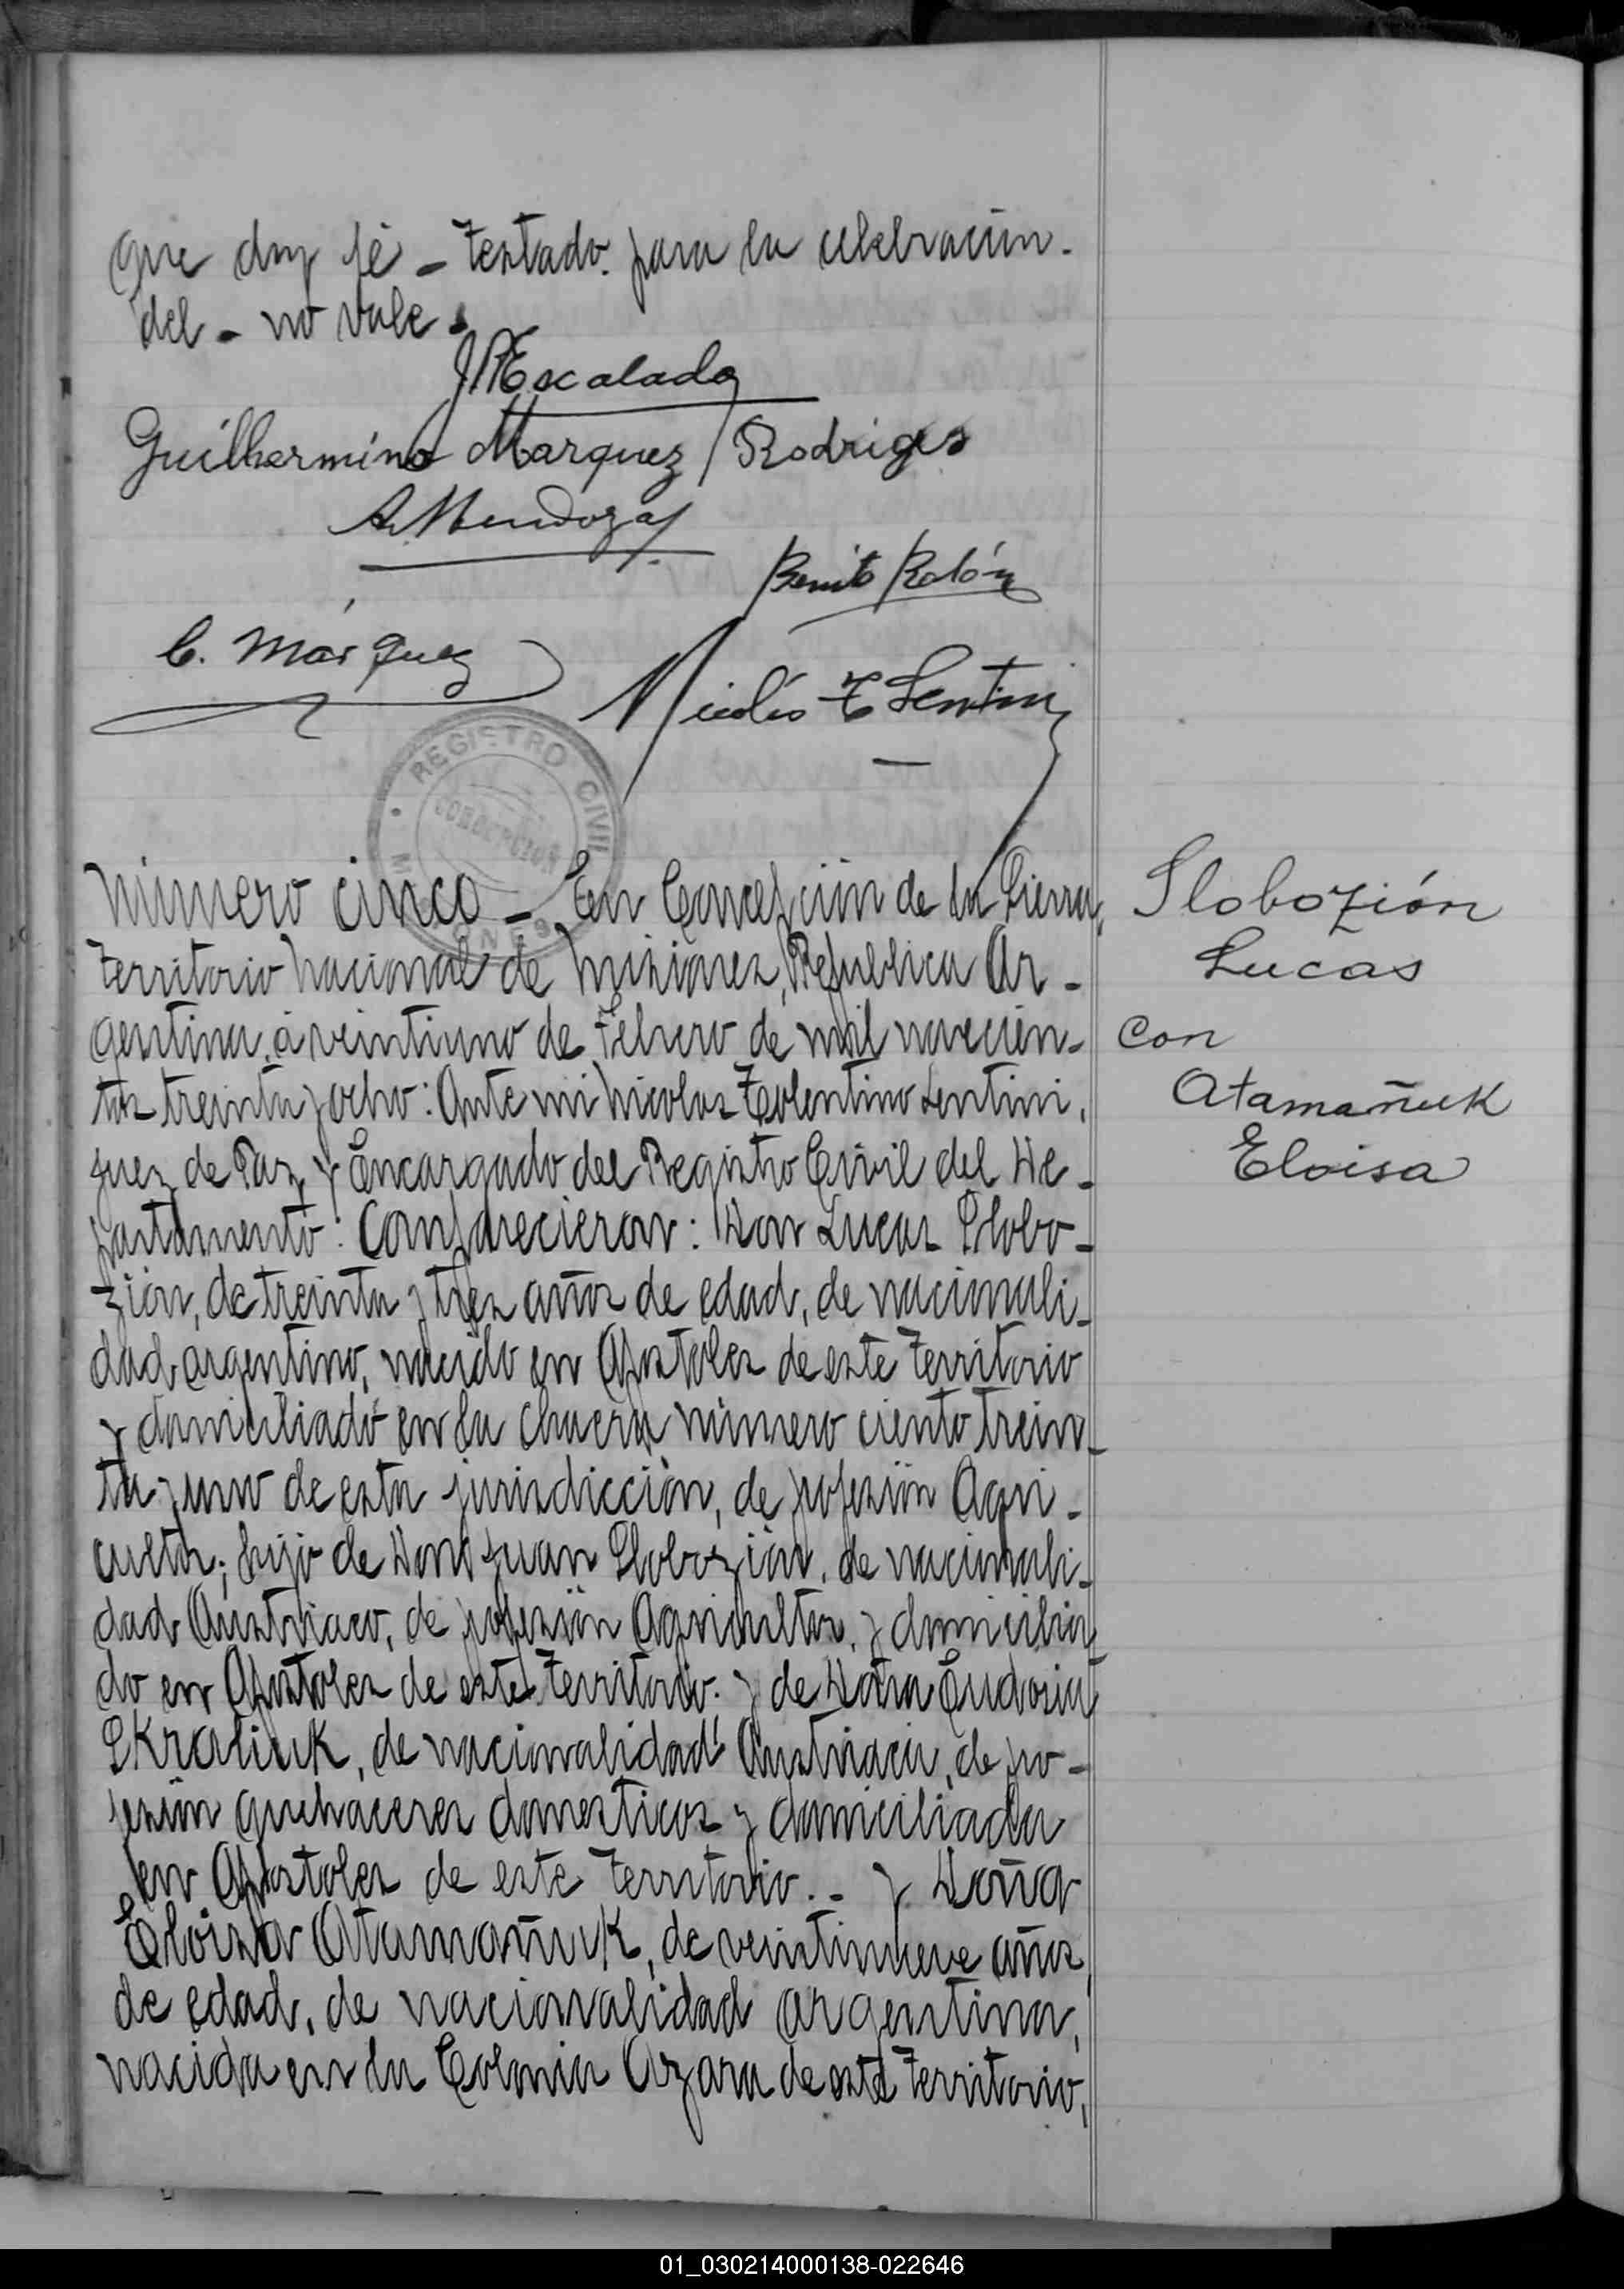 que doy fé - Testado. para la celebración.
del - no vale.
J R Escalada
Guilhermina Marquez Rodrigez
A. Mendoza
Benito Rolón
C. Márquez
Nicolás T Sentini
REGISTRO CIVIL
CONCEPCION
MISIONES
Número cinco - En Concepción de la Sierra,
Territorio Nacional de Misiones, República Ar-
gentina, á veintiuno de Febrero de mil novecien-
tos treinta y ocho: Ante mi Nicolas Tolentino Sentini,
Juez de Paz y Encargado del Registro Civil del De-
partamento: Comparecieron: Don Lucas Slobo-
zión, de treinta y tres años de edad, de nacionali-
dad argentino, nacido en Apostoles de este Territorio
y domiciliado en la chacra número ciento trein-
ta y uno de esta jurisdicción, de profesión Agri-
cultor; hijo de Don Juan Slobozión, de nacionali-
dad Austriaco, de profesión Agricultor, y domicilia
do en Apostoles de este Territorio. y de Doña Eudosia
Skraliuk, de nacionalidad Austriaca, de pro-
fesión quehaceres domesticos y domiciliada
en Apostoles de este Territorio.- y Doña
Eloisa Atamañuk, de veintinueve años
de edad, de nacionalidad argentina,
nacida en la Colonia Azara de este Territorio,
Slobozión
Lucas
con
Atamañuk
Eloisa
01_030214000138-022646